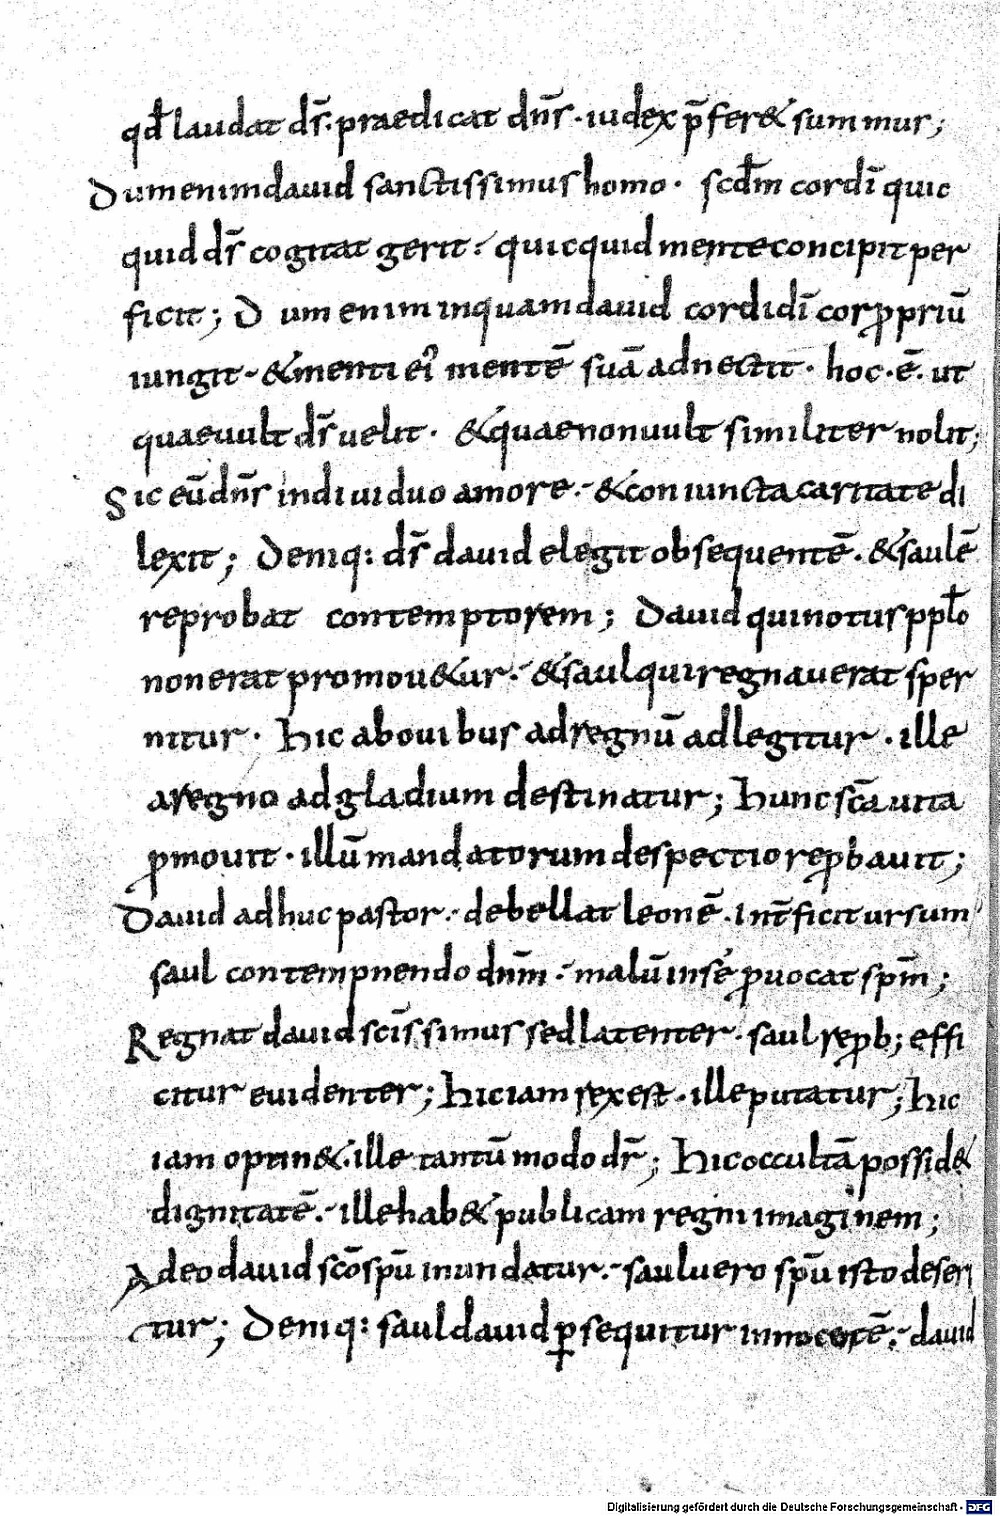 qd̄ laudat dr̄s. praedicat dn̄s · iudex p̄fer& summus;
Dum enim dauid sanctissimus homo · scd̄m cor di̅ quic
quid dr̄ cogitat gerit · quicquid mente concipit per
ficit; Dum enim inquam dauid cordi di̅ cor ꝓpriū
iungit · & menti ei᾽ mentē suā adnectit · hoc · ē · ut
quae uult dr̄ uelit · & quae non uult similiter nolit;
Sic eū dn̄s indiuiduo amore · & coniuncta caritate di
lexit; Deniq: dr̄ dauid elegit obsequentē · & saulē
reprobat contemptorem; Dauid qui notus pplo̅
non erat promou&ur · & saul qui regnauerat sper
nitur · Hic a bouibus ad regnū adlegitur · ille
a regno ad gladium destinatur; Hunc sc̄a uita
ꝓmouit · illū mandatorum despectio reꝓbauit;
Dauid adhuc pastor · debellat leonē · int̄ficit ursum
saul contempnendo dnm̄ · malū in se ꝓuocat spm̄;
Regnat dauid sci̅ssimus sed latenter · saul reꝓb; effi
citur euidenter; Hic iam rex est · ille putatur; Hic
iam optin& · ille tantū modo dr̄; Hic occultā possid&
dignitatē · ille hab& publicam regni imaginem;
Adeo dauid sc̄o spū inundatur · saul uero spū isto deseri
tur; Deniq: saul dauid ꝑsequitur innocētē · dauid
Digitalisierung gefördert durch die Deutsche Forschungsgemeinschaft - DFG